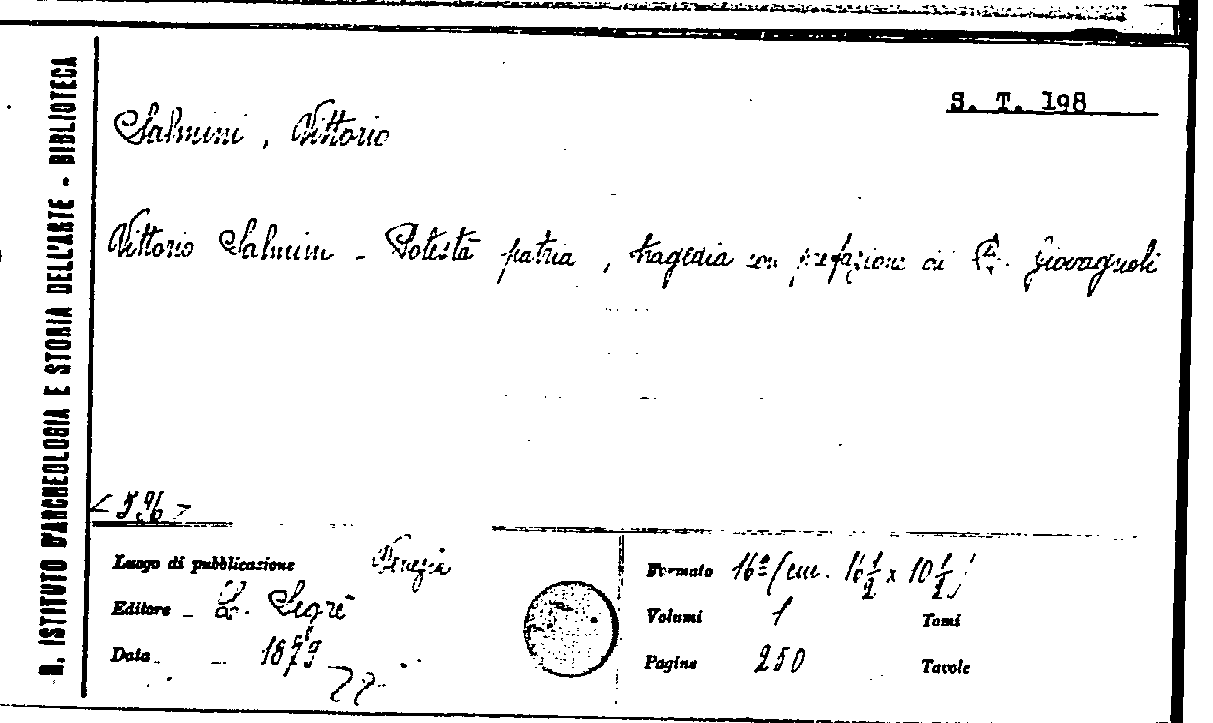 R. ISTITUTO D'ARCHEOLOGIA E STORIA DELL'ARTE - BIBLIOTECA
S. T. 198
Salmini, Vittorio
Vittorio Salmini - Potestà patria, tragedia con prefazione di R. Giovagnoli
Luogo di pubblicazione Venezia
Formato 16º (cm. 16 1/2 x 10 1/2)
Editore - Segré
Volumi 1 Tomi
Data 1879
Pagine 250 Tavole